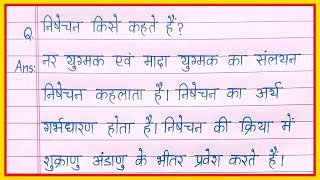 Q. निषेचन किसे कहते हैं?
Ans: नर युग्मक एवं मादा युग्मक का संलयन
निषेचन कहलाता है। निषेचन का अर्थ
गर्भधारण होता है। निषेचन की क्रिया में
शुक्राणु अंडाणु के भीतर प्रवेश करते हैं।